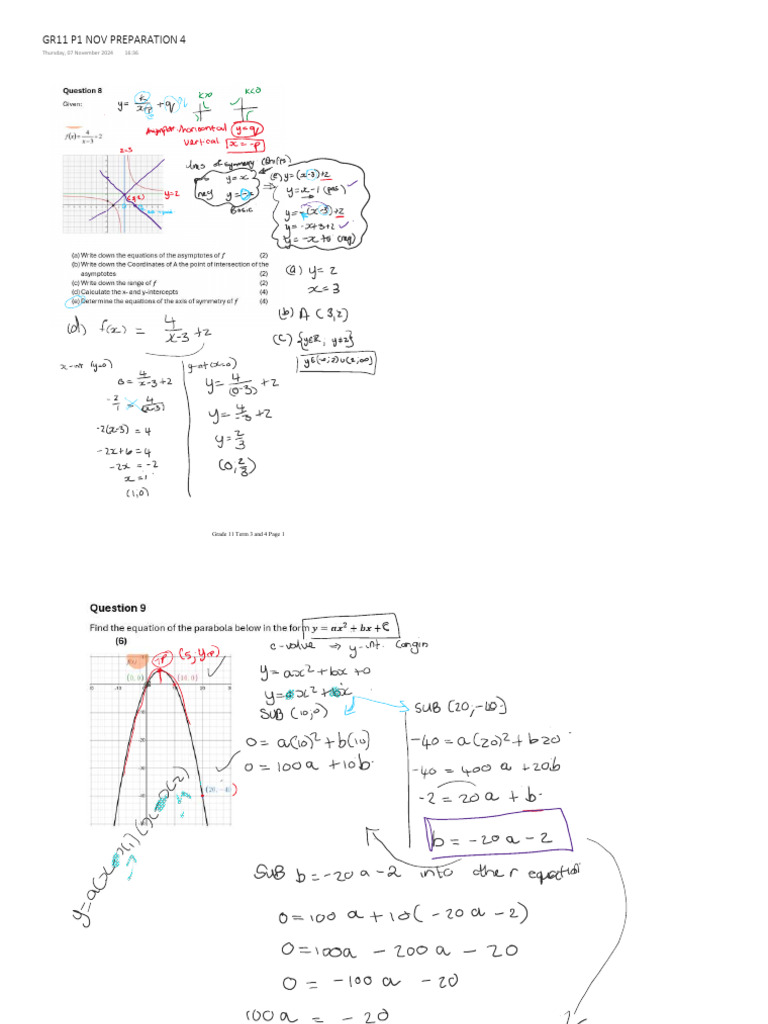 GR11 P1 NOV PREPARATION 4
Thursday, 07 November 2024 16:36
Question 8
Given:
y = k/(x+p) + q
k>0
k<0
f(x) = 4/(x−3) + 2
horizontal y=q
vertical x = -p
x=3
y=2
lines of symmetry
pos y = x
neg y = -x
Basic
(e) y = (x-3)+2
y = x-1 (pos)
y = -(x-3)+2
y = -x+3+2
y = -x+5 (neg)
(a) Write down the equations of the asymptotes of f (2)
(b) Write down the Coordinates of A the point of intersection of the
asymptotes (2)
(c) Write down the range of f (2)
(d) Calculate the x- and y-intercepts (4)
(e) Determine the equations of the axis of symmetry of f (4)
(a) y = 2
x = 3
(b) A (3,2)
(c) {y∈R, y≠2}
y∈(-∞;2)∪(2;∞)
(d) f(x) = 4/(x-3) + 2
x-int (y=0)
0 = 4/(x-3) + 2
-2/1 = 4/(x-3)
-2(x-3) = 4
-2x+6 = 4
-2x = -2
x = 1
(1,0)
y-int (x=0)
y = 4/(0-3) + 2
y = 4/-3 + 2
y = 2/3
(0, 2/3)
Grade 11 Term 3 and 4 Page 1
Question 9
Find the equation of the parabola below in the form y = ax² + bx + C
(6)
TP (5, yTP)
(0, 0)
(10, 0)
(20, −40)
y = a(x-x1)(x-x2)
c-value ⇒ y-int. (origin
y = ax² + bx + 0
y = ax² + bx
SUB (10,0)
0 = a(10)² + b(10)
0 = 100a + 10b
SUB (20, -40)
-40 = a(20)² + b20
-40 = 400a + 20b
-2 = 20a + b
b = -20a - 2
SUB b = -20a - 2 into other equation
0 = 100a + 10(-20a - 2)
0 = 100a - 200a - 20
0 = -100a - 20
100a = -20